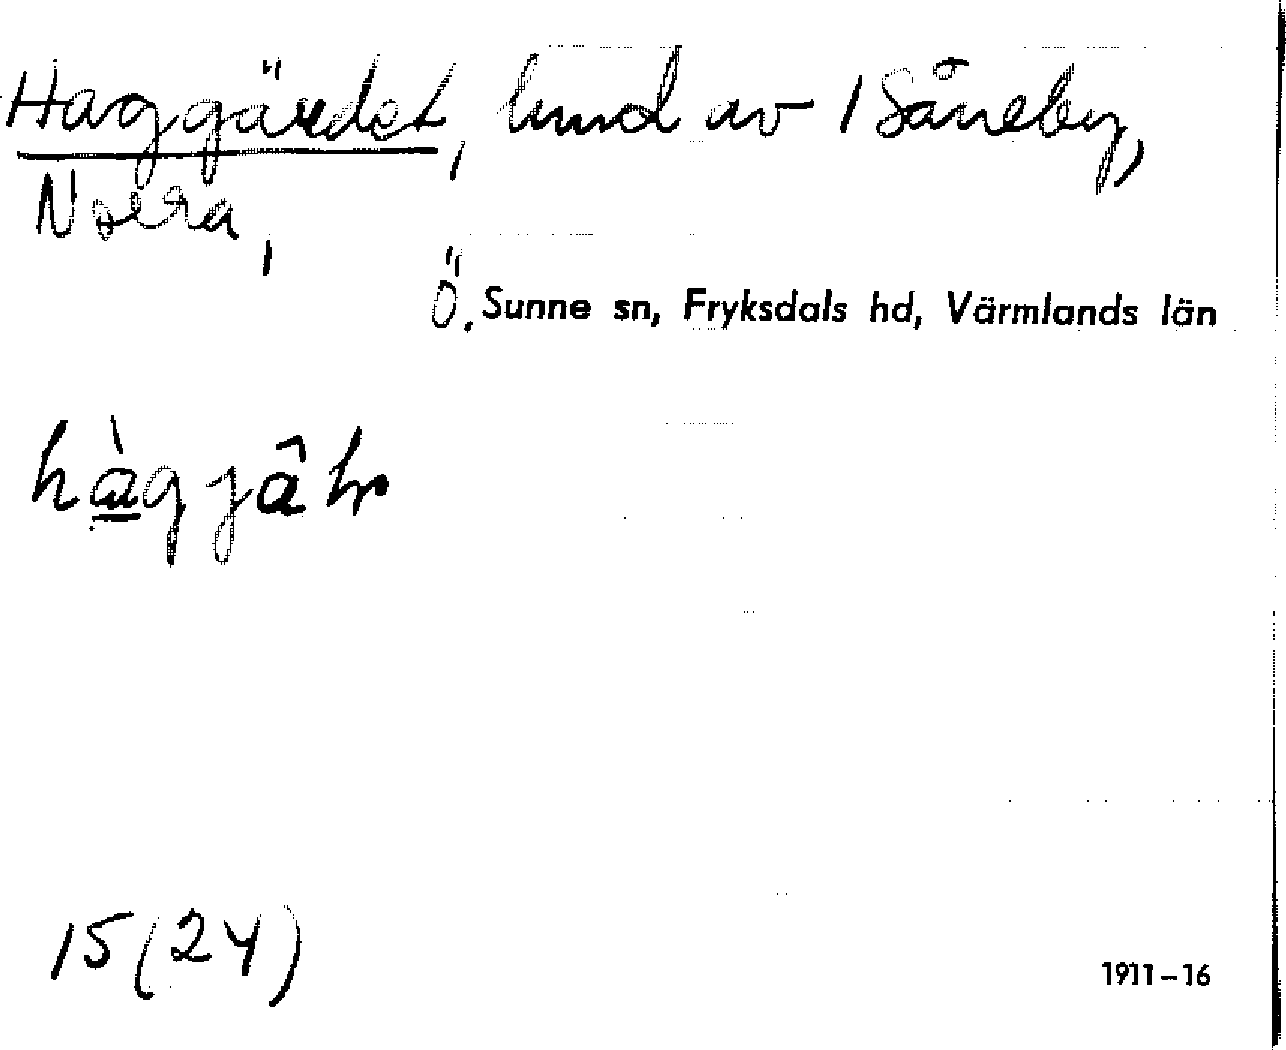 Haggärdet, lund av 1 Såneby,
Norra,
Ö. Sunne sn, Fryksdals hd, Värmlands län
15(24)
1911–16